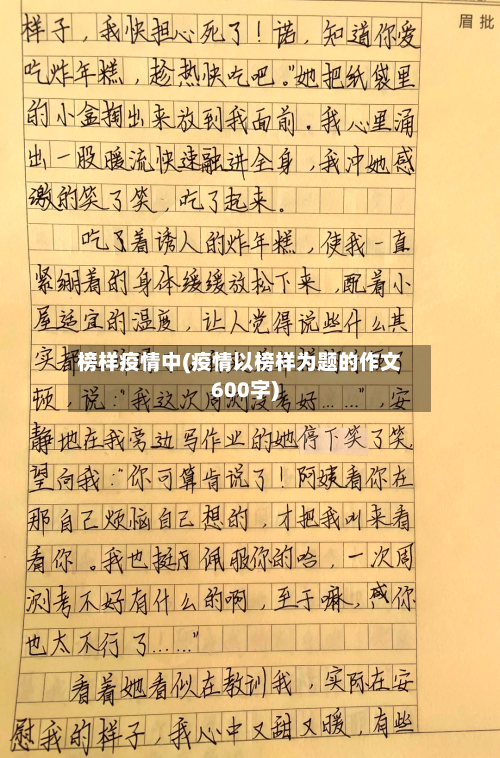 眉批
样子，我快担心死了！诺，知道你爱
吃炸年糕，趁热快吃吧。”她把纸袋里
的小盒掏出来放到我面前。我心里涌
出一股暖流快速融进全身，我冲她感
激的笑了笑，吃了起来。
吃了着诱人的炸年糕，使我一直
紧绷着的身体缓缓放松下来，配着小
屋适宜的温度，让人觉得说些什么其
实都
榜样疫情中(疫情以榜样为题的作文
600字)
顿，说：“我这次周测没考好……”，安
静地在我旁边写作业的她停下笑了笑
望向我：“你可算肯说了！阿姨看你在
那自己烦恼自己想的，才把我叫来看
看你。我也挺佩服你的哈，一次周
测考不好有什么的啊，至于嘛，感你
也太不行了……”
看着她看似在教训我，实际在安
慰我的样子，我心中又甜又暖，有些